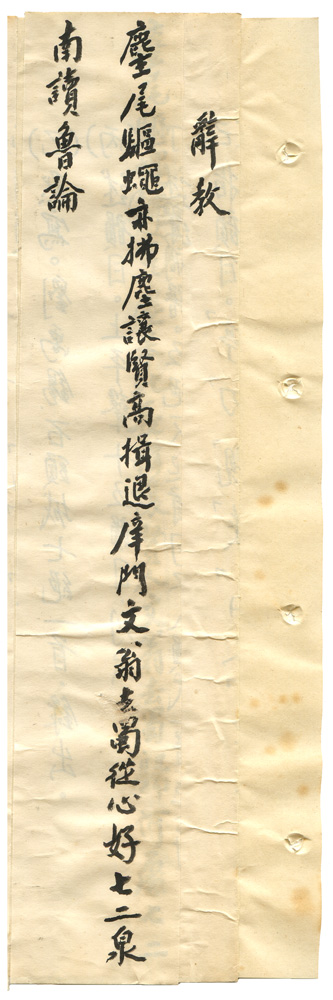 辭教
麈尾驅蠅亦拂塵讓賢高揖退庠門文翁去蜀從心好七二泉
南讀魯論